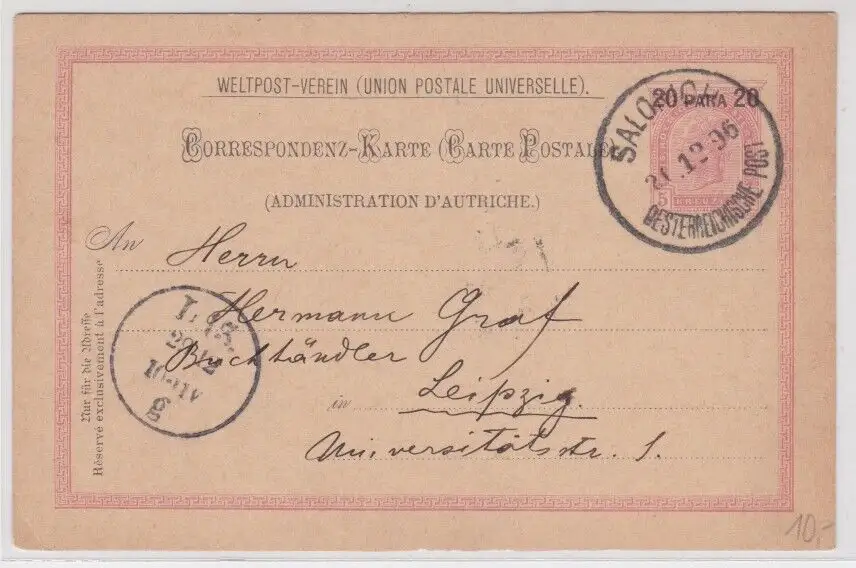 WELTPOST-VEREIN (UNION POSTALE UNIVERSELLE).
20 PARA 20
CORRESPONDENZ-KARTE (CARTE POSTALE
(ADMINISTRATION D'AUTRICHE.)
5 KREUZER
12 96
OESTERREICHISCHE POST
An Herrn
Hermann Graf
Buchhändler
in Leipzig.
Universitätsstr. 1.
Nur für die Adresse
Réservé exclusivement à l'adresse
10,-